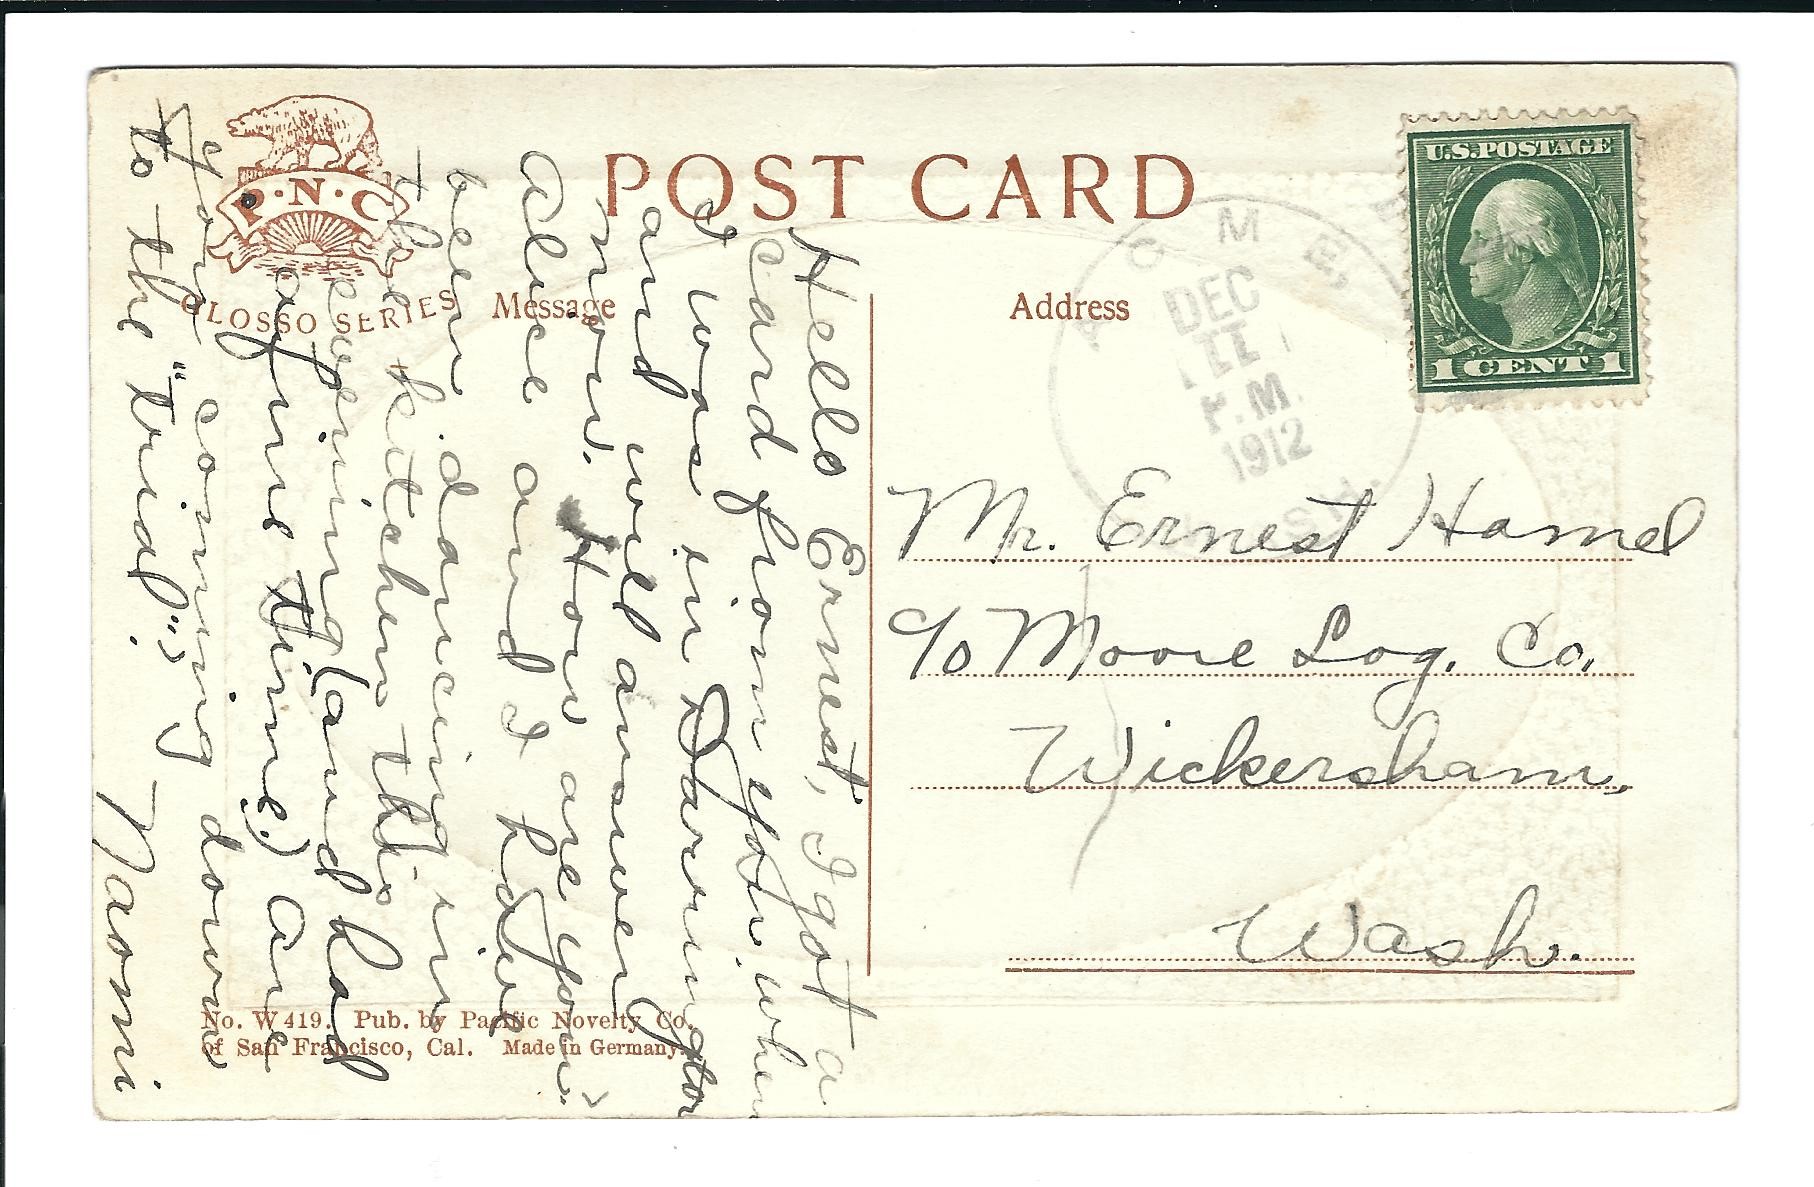 P·N·C
GLOSSO SERIES
POST CARD
Message
Address
U.S. POSTAGE
1 CENT 1
ACME,
DEC
11
P.M.
1912
WASH.
Mr. Ernest Hamel
c/o Moore Log. Co.
Wickersham,
Wash.
Hello Ernest, I got a
card from you when
I was in Darrington
and will answer
now. How are you?
Alice and I have
been dancing in
the kitchen this
evening (and had
a fine time.) Are
you coming down
to the "trial"?
Naomi
No. W 419. Pub. by Pacific Novelty Co.
of San Francisco, Cal. Made in Germany.